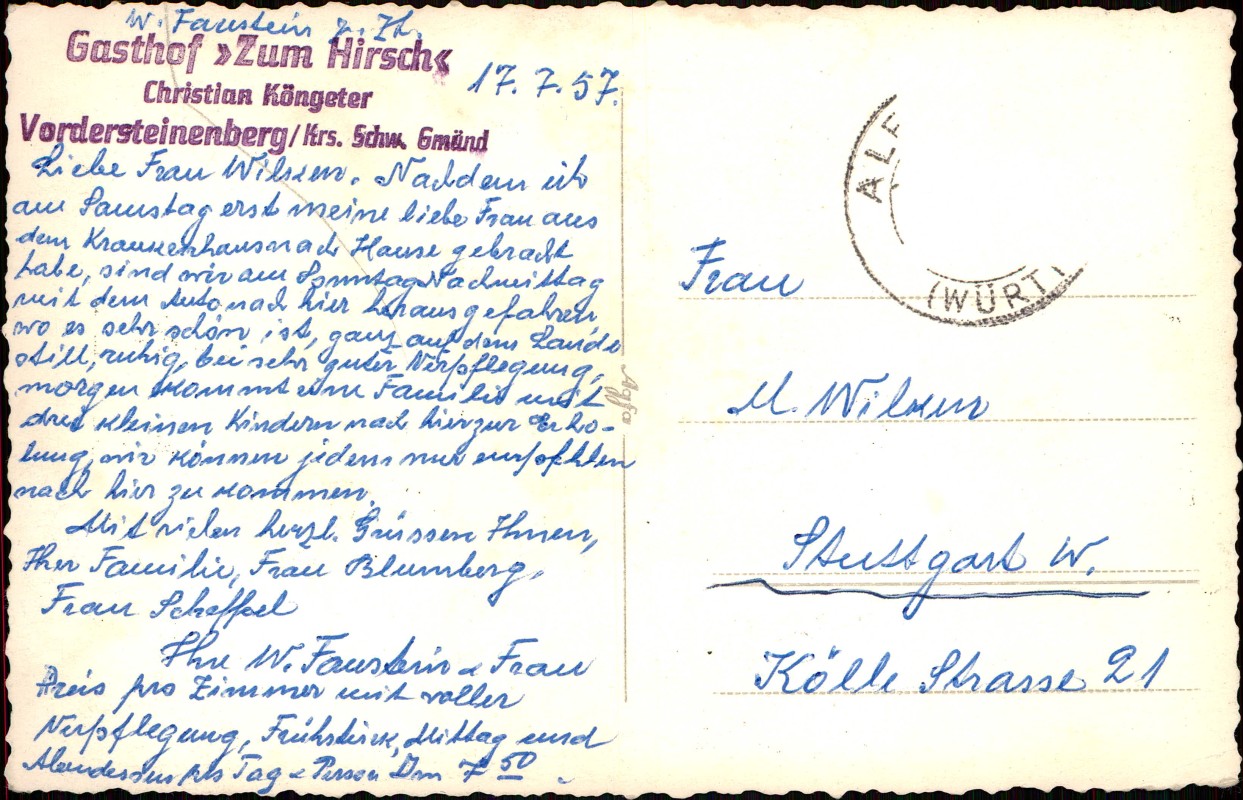 W. Faustein z. Zt.
Gasthof »Zum Hirsch«
Christian Köngeter
Vordersteinenberg/Krs. Schw. Gmünd
17. 7. 57.
Liebe Frau Wilxen. Nachdem ich
am Samstag erst meine liebe Frau aus
dem Krankenhaus nach Hause gebracht
habe, sind wir am Sonntag Nachmittag
mit dem Auto nach hier herausgefahren
wo es sehr schön ist, ganz auf dem Lande
still, ruhig, bei sehr guter Verpflegung,
morgen kommt eine Familie mit
drei kleinen Kindern nach hier zur Erho-
lung, wir können jedem nur empfehlen
nach hier zu kommen.
Mit vielen herzl. Grüssen Ihnen,
Ihrer Familie, Frau Blumberg,
Frau Scheffel
Ihre W. Faustein & Frau
Preis pro Zimmer mit voller
Verpflegung, Frühstück, Mittag und
Abendessen pro Tag & Person Dm 7 50
Agfa
ALF
(WÜRTT
Frau
M. Wilxen
Stuttgart W.
Kölle Strasse 21